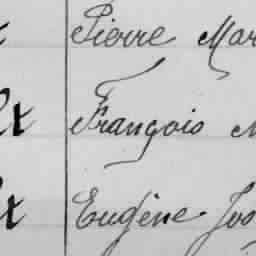 Pierre Mar
François
Eugène Jos